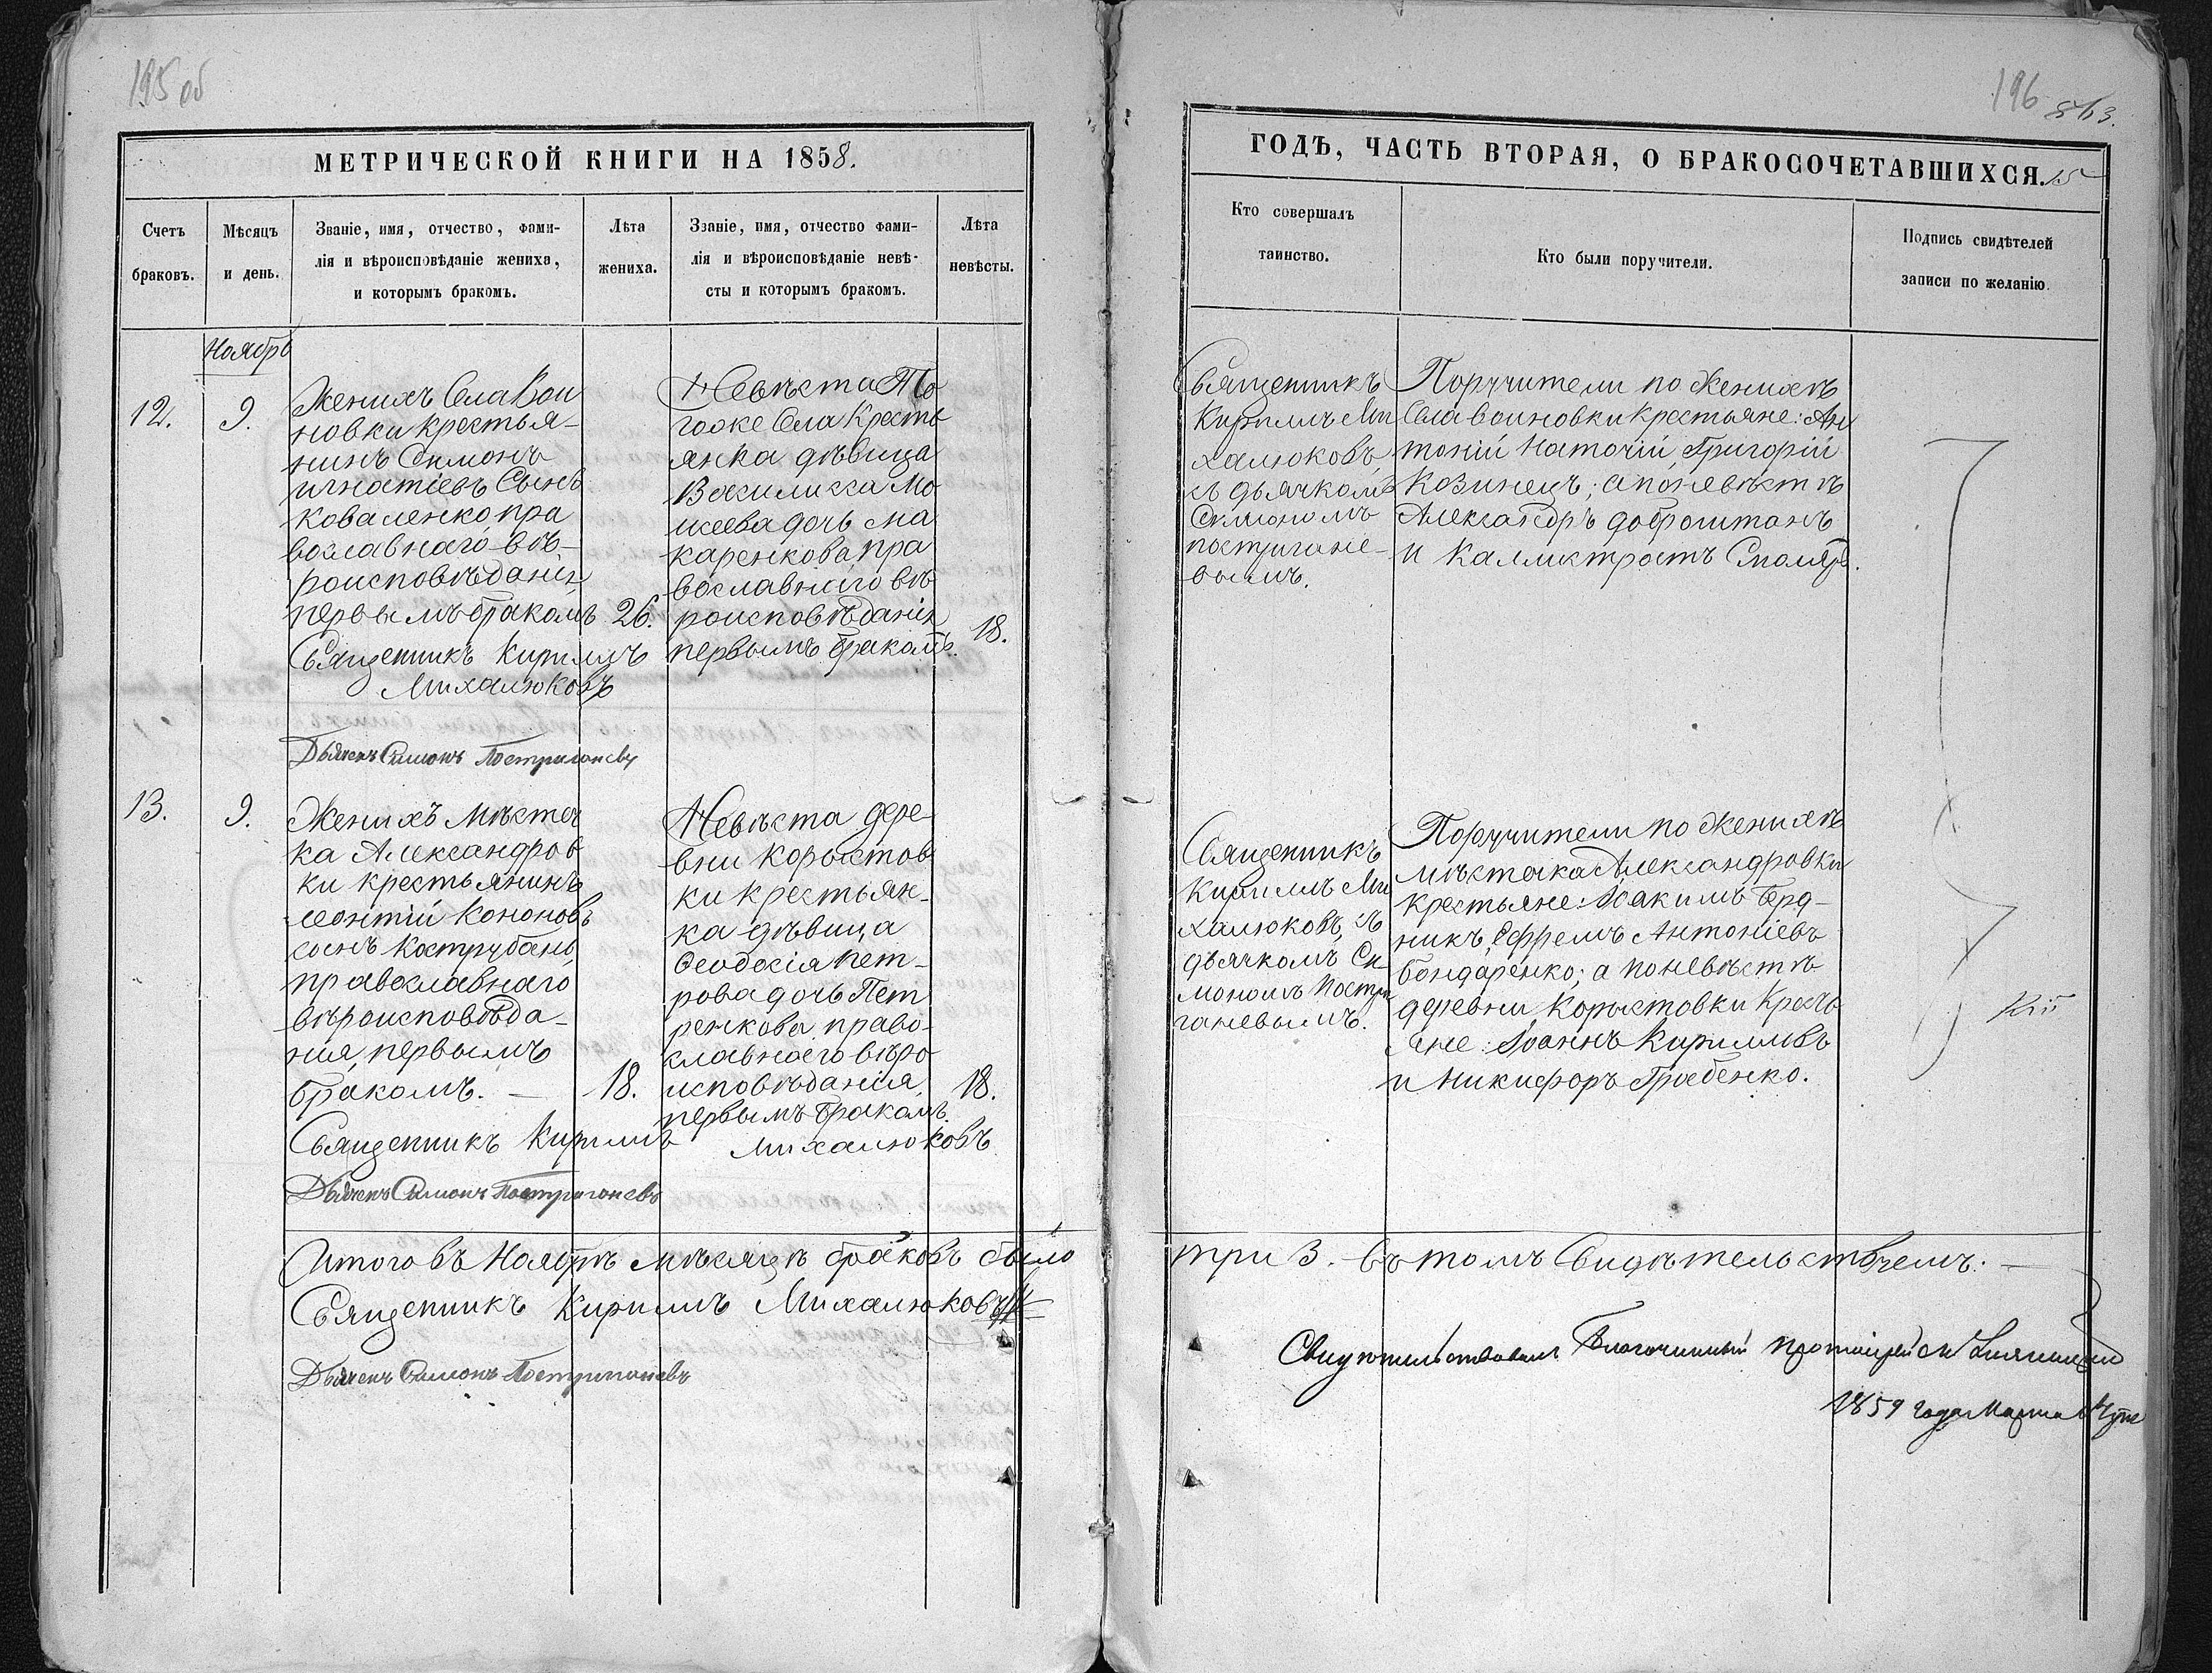 195 об
МЕТРИЧЕСКОЙ КНИГИ НА 1858.
Счетъ
браковъ.
Мѣсяцъ
и день.
Званіе, имя, отчество, фами-
лія и вѣроисповѣданіе жениха,
и которымъ бракомъ.
Лѣта
жениха.
Званіе, имя, отчество фами-
лія и вѣроисповѣданіе невѣ-
сты и которымъ бракомъ.
Лѣта
невѣсты.
Ноябрь
12.
9.
Женихъ Села Вои
новки крестья-
нинъ Симонъ
игнатіевъ Сынъ
коваленко пра
вославнаго вѣ-
роисповѣданія
первымъ бракомъ
26.
Невѣста То
гоже Села Кресть
янка дѣвица
Василисса Мо
исеева дочь Ма
каренкова, пра
вославнаго вѣ
роисповѣданія
первымъ бракомъ.
18.
Священникъ Кириллъ
Михалюковъ
Дьячекъ Симонъ Постригоневъ
13.
9.
Женихъ Мѣстеч
ка Александров
ки крестьянинъ
леонтій Кононовъ
сынъ Кострубань,
православнаго
вѣроисповѣда-
нія, первымъ
бракомъ. —
18.
Невѣста дере
вни Корыстов
ки крестьян-
ка дѣвица
Ѳеодосія Пет-
рова дочь Пет
ренкова, право-
славнаго вѣро
исповѣданія,
первымъ бракомъ.
18.
Священникъ Кириллъ Михалюковъ
Дьячекъ Симонъ Постригоневъ
Итого въ Ноябрѣ мѣсяцѣ браковъ было
Священникъ Кириллъ Михалюковъ
Дьячекъ Симонъ Постригоневъ
196
863.
ГОДЪ, ЧАСТЬ ВТОРАЯ, О БРАКОСОЧЕТАВШИХСЯ. 15
Кто совершалъ
таинство.
Кто были поручители.
Подпись свидѣтелей
записи по желанію.
Священникъ
Кириллъ Ми
халюковъ,
съ дьячкомъ
Симономъ
постригане-
вымъ.
Поручители по Женихѣ
Села воиновки крестьяне: Ан
тоній Наточій, Григорій
Козинецъ; а по невѣстѣ
Александръ доброштанъ
и Каллистратъ Смоляръ.
Священникъ
Кириллъ Ми
халюковъ, съ
дьячкомъ Си
мономъ Постри
ганевымъ.
Поручители по Женихѣ
мѣстечка Александровки
крестьяне: Іоакимъ Берд-
никъ, Ефремъ Антоніевъ
бондаренко; а по невѣстѣ
деревни Корыстовки Кресть
яне: Іоаннъ Кирилловъ
и Никифоръ Гребенко.
три 3. Въ томъ Свидѣтельствуемъ: —
Свидѣтельствовалъ Благочинный протоіерей
1859 года Марта